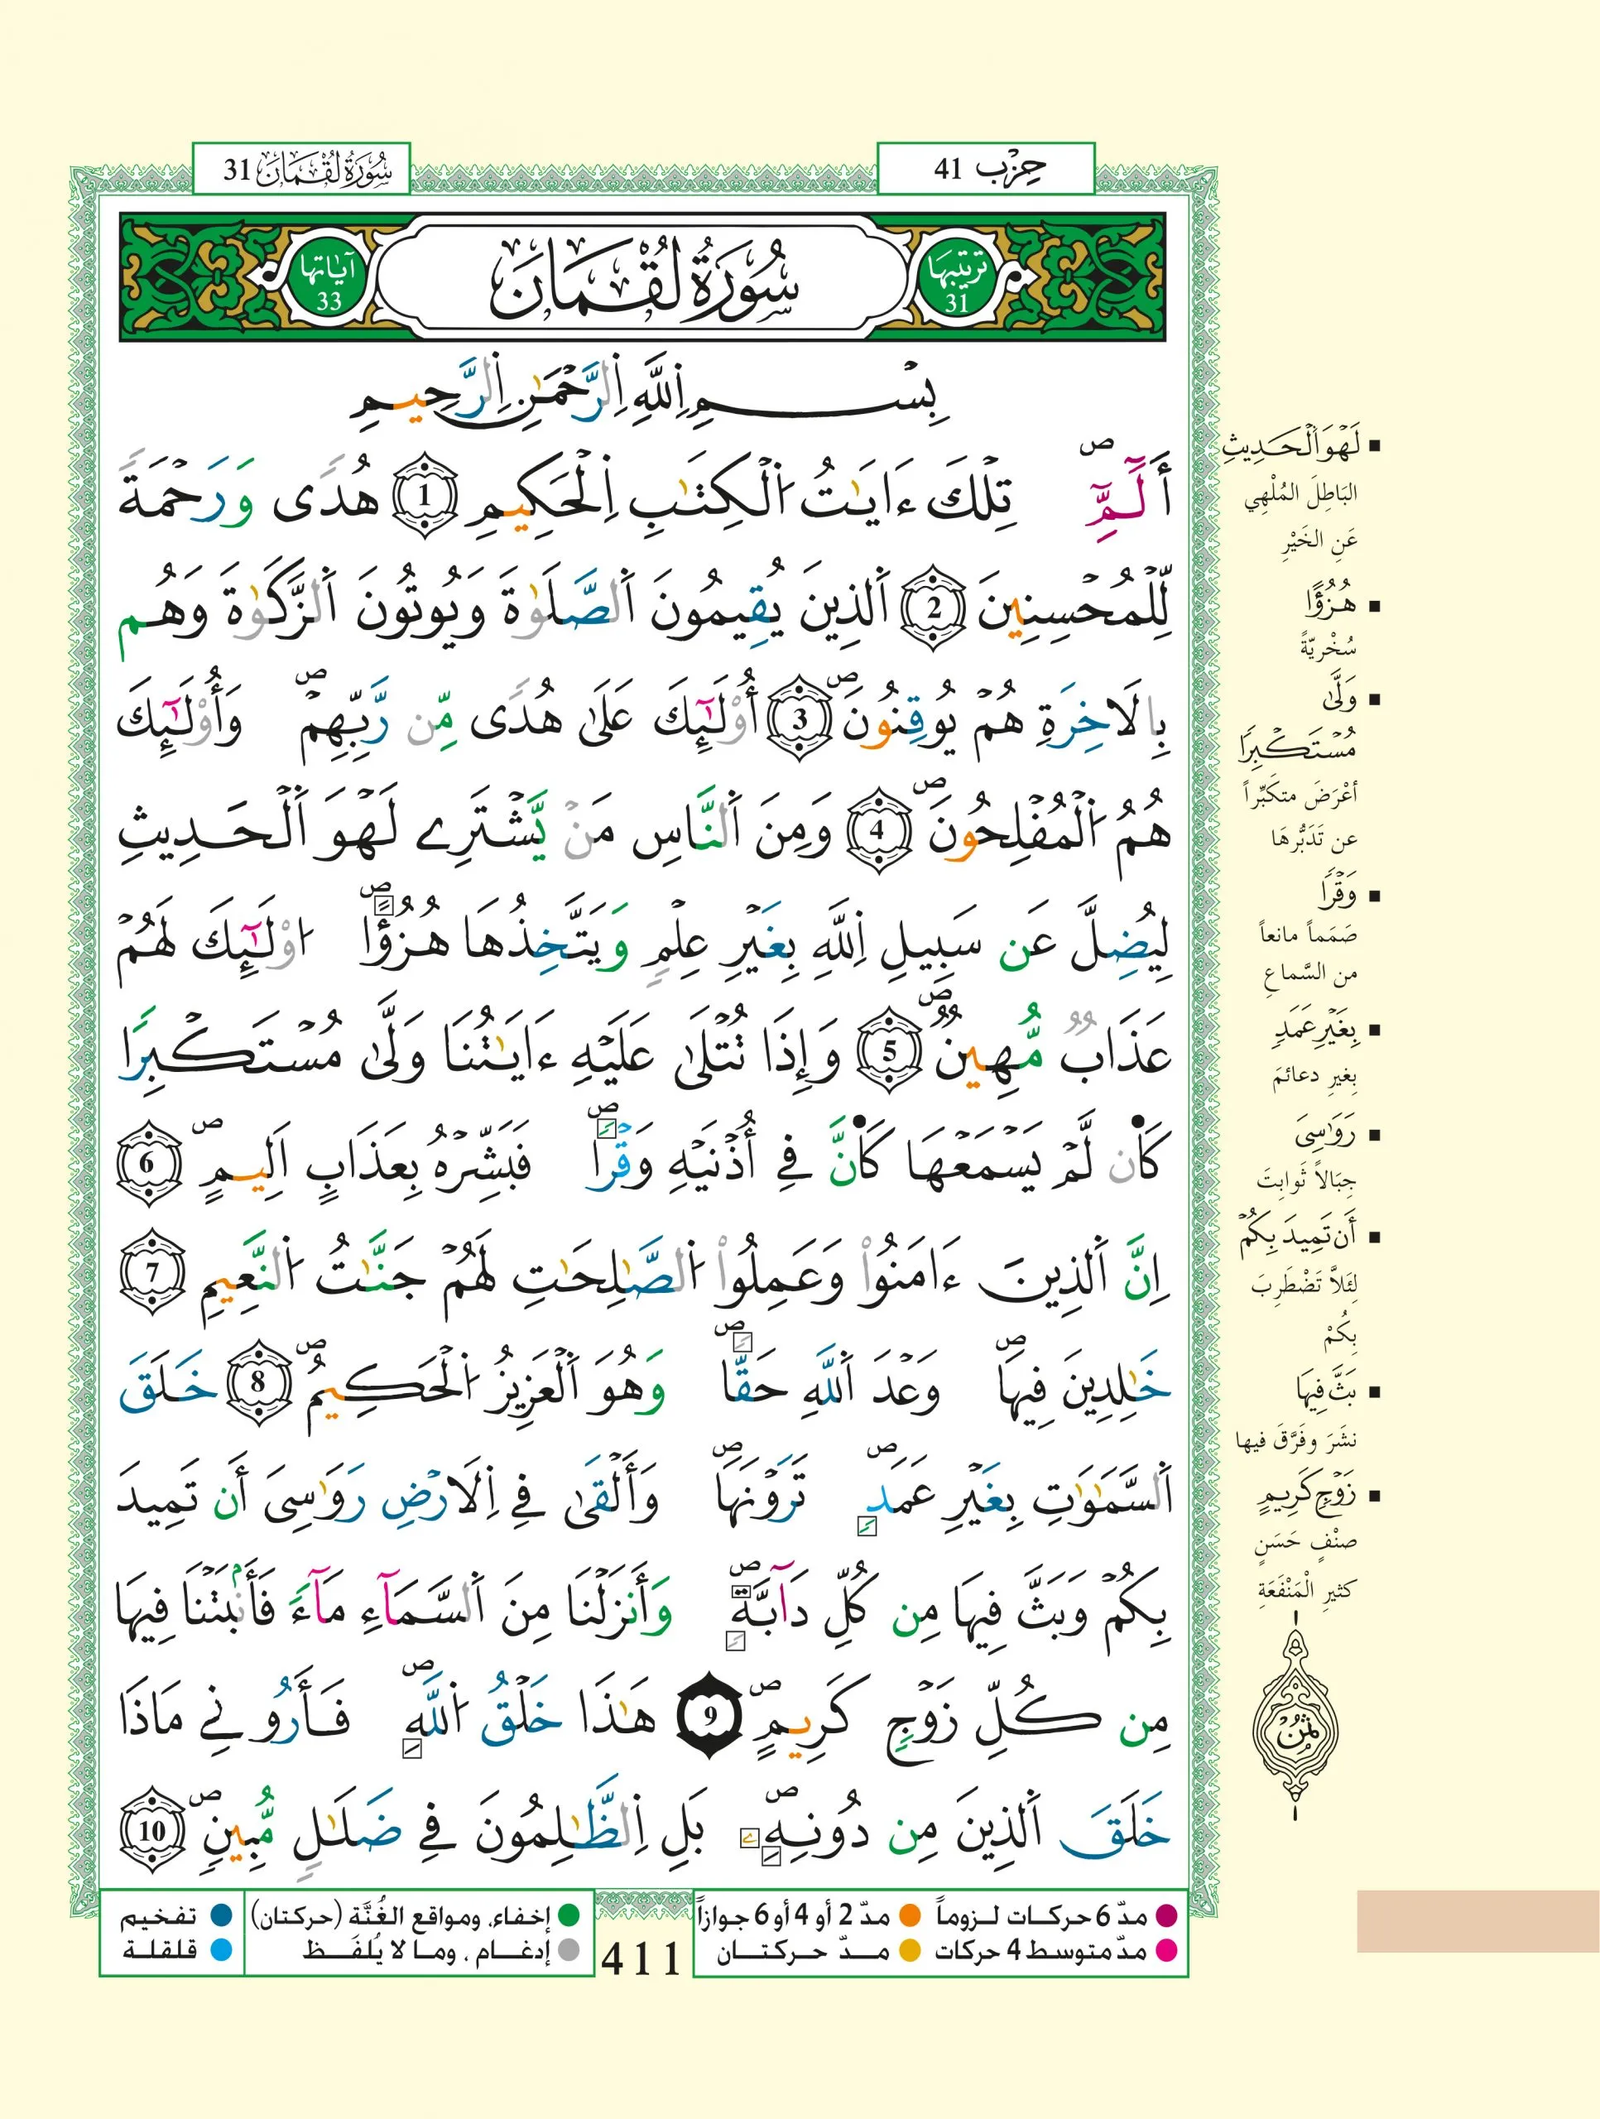 حِزْب 41
سُورَةُ لُقْمَانَ 31
تَرتيبُهَا 31
سُورَةُ لُقْمَانَ
آيَاتها 33
بِسْمِ اِ۬للَّهِ اِ۬لرَّحْمَٰنِ اِ۬لرَّحِيمِ
أَلَٓمِّٓۖ تِلْكَ ءَايَٰتُ اُ۬لْكِتَٰبِ اِ۬لْحَكِيمِ 1 هُدىٗ وَرَحْمَةٗ
لِّلْمُحْسِنِينَ 2 اَ۬لذِينَ يُقِيمُونَ اَ۬لصَّلَوٰةَ وَيُوتُونَ اَ۬لزَّكَوٰةَ وَهُم
بِالَاخِرَةِ هُمْ يُوقِنُونَۖ 3 أُوْلَٰٓئِكَ عَلَىٰ هُدىٗ مِّن رَّبِّهِمْۖ وَأُوْلَٰٓئِكَ
هُمُ اُ۬لْمُفْلِحُونَۖ 4 وَمِنَ اَ۬لنَّاسِ مَنْ يَّشْتَرِے لَهْوَ اَ۬لْحَدِيثِ
لِيُضِلَّ عَن سَبِيلِ اِ۬للَّهِ بِغَيْرِ عِلْمٖ وَيَتَّخِذُهَا هُزُؤاًۖ ا۟وْلَٰٓئِكَ لَهُمْ
عَذَابٞ مُّهِينٞۖ 5 وَإِذَا تُتْلَىٰ عَلَيْهِ ءَايَٰتُنَا وَلَّىٰ مُسْتَكْبِراٗ
كَأَن لَّمْ يَسْمَعْهَا كَأَنَّ فِے أُذْنَيْهِ وَقْراٗۖ فَبَشِّرْهُ بِعَذَابٍ اَلِيمٍۖ 6
اِنَّ اَ۬لذِينَ ءَامَنُواْ وَعَمِلُواْ اُ۬لصَّٰلِحَٰتِ لَهُمْ جَنَّٰتُ اُ۬لنَّعِيمِ 7
خَٰلِدِينَ فِيهَاۖ وَعْدَ اَ۬للَّهِ حَقّاٗۖ وَهُوَ اَ۬لْعَزِيزُ اُ۬لْحَكِيمُۖ 8 خَلَقَ
اَ۬لسَّمَٰوَٰتِ بِغَيْرِ عَمَدٖۖ تَرَوْنَهَاۖ وَأَلْقَىٰ فِے اِ۬لَارْضِ رَوَٰسِيَ أَن تَمِيدَ
بِكُمْ وَبَثَّ فِيهَا مِن كُلِّ دَآبَّةٖۖ وَأَنزَلْنَا مِنَ اَ۬لسَّمَآءِ مَآءٗ فَأَنۢبَتْنَا فِيهَا
مِن كُلِّ زَوْجٖ كَرِيمٍۖ 9 هَٰذَا خَلْقُ اُ۬للَّهِۖ فَأَرُونِے مَاذَا
خَلَقَ اَ۬لذِينَ مِن دُونِهِۦۖ بَلِ اِ۬لظَّٰلِمُونَ فِے ضَلَٰلٖ مُّبِينٖۖ 10
لَهْوَ اَ۬لْحَدِيثِ
البَاطِلَ المُلْهِي
عَنِ الخَيْرِ
هُزُؤاً
سُخْريّةً
وَلَّىٰ
مُسْتَكْبِراٗ
أعْرَضَ متكَبِّراً
عن تَدَبُّرهَا
وَقْراٗ
صَمَماً مانعاً
من السَّماعِ
بِغَيْرِ عَمَدٖ
بِغيرِ دعائمَ
رَوَٰسِيَ
جِبَالاً ثَوابِتَ
أَن تَمِيدَ بِكُمْ
لِئَلاَّ تَضْطَرِبَ
بِكُمْ
بَثَّ فِيهَا
نشَرَ وفَرَّقَ فيها
زَوْجٖ كَرِيمٍ
صنْفٍ حَسَنٍ
كثيرِ الْمَنْفَعَةِ
ثُمُن
مدّ 6 حركات لـزوماً مدّ 2 أو 4 أو 6 جوازاً
مدّ متوسط 4 حركات مـدّ حـركتـان
411
إخفاء، ومواقع الغُنَّة (حركتان)
إدغـام ، ومـا لا يُلفَـظ
تفخيم
قلقلـة